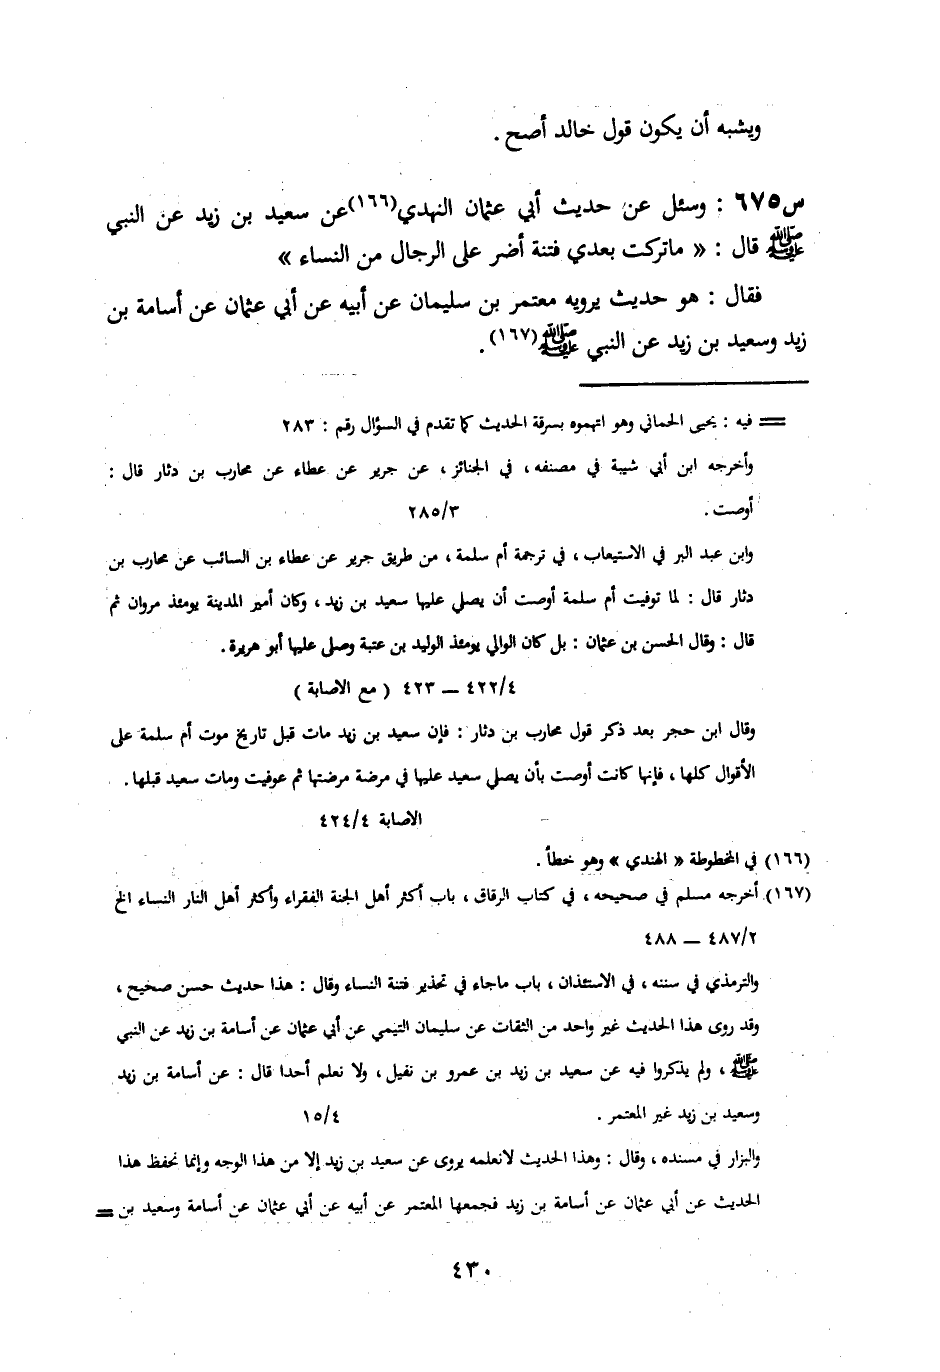 ويشبه أن يكون قول خالد أصح .
س٦٧٥ : وسئل عن حديث أبي عثمان النهدي(١٦٦)عن سعيد بن زيد عن النبي
ﷺ قال : « ماتركت بعدي فتنة أضر على الرجال من النساء »
فقال : هو حديث يرويه معتمر بن سليمان عن أبيه عن أبي عثمان عن أسامة بن
زيد وسعيد بن زيد عن النبي ﷺ(١٦٧).
= فيه : يحيى الحماني وهو اتهموه بسرقة الحديث كما تقدم في السؤال رقم : ٢٨٣
وأخرجه ابن أبي شيبة في مصنفه ، في الجنائز ، عن جرير عن عطاء عن محارب بن دثار قال :
أوصت . ٢٨٥/٣
وابن عبد البر في الاستيعاب ، في ترجمة أم سلمة ، من طريق جرير عن عطاء بن السائب عن محارب بن
دثار قال : لما توفيت أم سلمة أوصت أن يصلي عليها سعيد بن زيد ، وكان أمير المدينة يومئذ مروان ثم
قال : وقال الحسن بن عثمان : بل كان الوالي يومئذ الوليد بن عتبة وصلى عليها أبو هريرة .
٤٢٢/٤ — ٤٢٣ ( مع الاصابة )
وقال ابن حجر بعد ذكر قول محارب بن دثار : فإن سعيد بن زيد مات قبل تاريخ موت أم سلمة على
الأقوال كلها ، فإنها كانت أوصت بأن يصلي سعيد عليها في مرضة مرضتها ثم عوفيت ومات سعيد قبلها .
الاصابة ٤٢٤/٤
(١٦٦) في المخطوطة « الهندي » وهو خطأ .
(١٦٧) أخرجه مسلم في صحيحه ، في كتاب الرقاق ، باب أكثر أهل الجنة الفقراء وأكثر أهل النار النساء الخ
٤٨٧/٢ — ٤٨٨
والترمذي في سننه ، في الاستئذان ، باب ماجاء في تحذير فتنة النساء وقال : هذا حديث حسن صحيح ،
وقد روى هذا الحديث غير واحد من الثقات عن سليمان التيمي عن أبي عثمان عن أسامة بن زيد عن النبي
ﷺ ، ولم يذكروا فيه عن سعيد بن زيد بن عمرو بن نفيل ، ولا نعلم أحدا قال : عن أسامة بن زيد
وسعيد بن زيد غير المعتمر . ١٥/٤
والبزار في مسنده ، وقال : وهذا الحديث لانعلمه يروى عن سعيد بن زيد إلا من هذا الوجه وإنما نحفظ هذا
الحديث عن أبي عثمان عن أسامة بن زيد فجمعها المعتمر عن أبيه عن أبي عثمان عن أسامة وسعيد بن =
٤٣٠